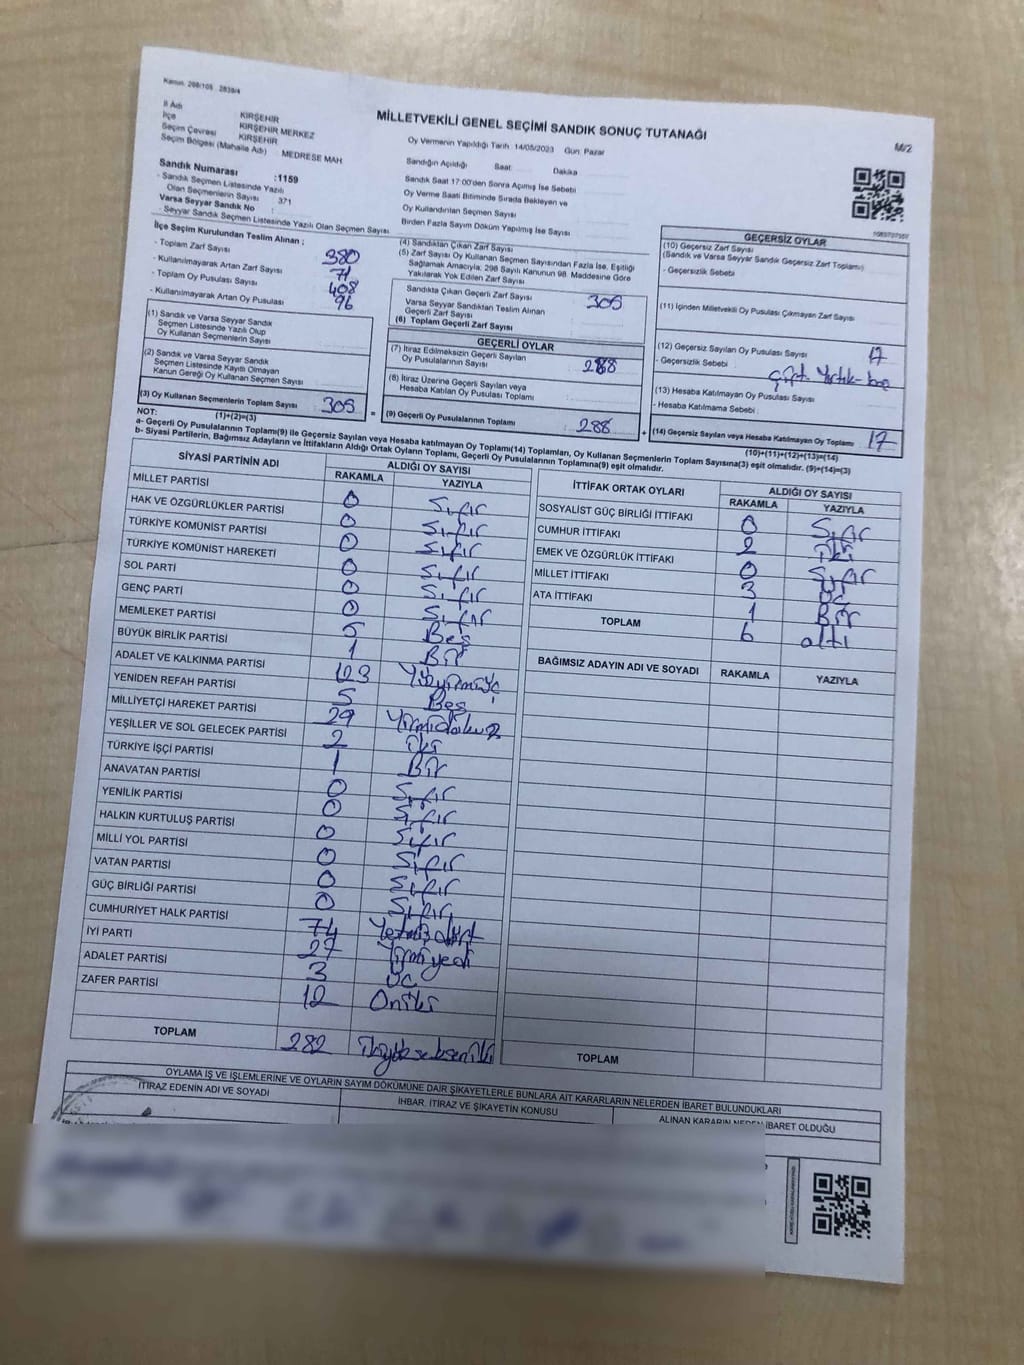 Kanun: 298/105 2839/4
MİLLETVEKİLİ GENEL SEÇİMİ SANDIK SONUÇ TUTANAĞI
M/2
İl Adı KIRŞEHİR
İlçe KIRŞEHİR MERKEZ
Seçim Çevresi KIRŞEHİR
Seçim Bölgesi (Mahalle Adı) : MEDRESE MAH
Oy Vermenin Yapıldığı Tarih 14/05/2023 Gün: Pazar
Sandığın Açıldığı Saat: Dakika
Sandık Saat 17:00'den Sonra Açımış İse Sebebi
Oy Verme Saati Bitiminde Sırada Bekleyen ve
Oy Kullandırılan Seçmen Sayısı
Birden Fazla Sayım Döküm Yapılmış İse Sayısı
Sandık Numarası :1159
- Sandık Seçmen Listesinde Yazılı
Olan Seçmenlerin Sayısı 371
Varsa Seyyar Sandık No :
- Seyyar Sandık Seçmen Listesinde Yazılı Olan Seçmen Sayısı
İlçe Seçim Kurulundan Teslim Alınan :
- Toplam Zarf Sayısı 380
- Kullanılmayarak Artan Zarf Sayısı 71
- Toplam Oy Pusulası Sayısı 408
- Kullanılmayarak Artan Oy Pusulası 96
(1) Sandık ve Varsa Seyyar Sandık
Seçmen Listesinde Yazılı Olup
Oy Kullanan Seçmenlerin Sayısı
(2) Sandık ve Varsa Seyyar Sandık
Seçmen Listesinde Kayıtlı Olmayan
Kanun Gereği Oy Kullanan Seçmen Sayısı
(3) Oy Kullanan Seçmenlerin Toplam Sayısı 305
(1)+(2)=(3)
(4) Sandıktan Çıkan Zarf Sayısı
(5) Zarf Sayısı Oy Kullanan Seçmen Sayısından Fazla İse, Eşitliği
Sağlamak Amacıyla; 298 Sayılı Kanunun 98. Maddesine Göre
Yakılarak Yok Edilen Zarf Sayısı
Sandıkta Çıkan Geçerli Zarf Sayısı 305
Varsa Seyyar Sandıktan Teslim Alınan
Geçerli Zarf Sayısı
(6) Toplam Geçerli Zarf Sayısı
GEÇERLİ OYLAR
(7) İtiraz Edilmeksizin Geçerli Sayılan
Oy Pusulalarının Sayısı 288
(8) İtiraz Üzerine Geçerli Sayılan veya
Hesaba Katılan Oy Pusulası Toplamı
= (9) Geçerli Oy Pusulalarının Toplamı 288
GEÇERSİZ OYLAR
(10) Geçersiz Zarf Sayısı
(Sandık ve Varsa Seyyar Sandık Geçersiz Zarf Toplamı)
- Geçersizlik Sebebi
(11) İçinden Milletvekili Oy Pusulası Çıkmayan Zarf Sayısı
(12) Geçersiz Sayılan Oy Pusulası Sayısı 17
- Geçersizlik Sebebi : Çift Yırtık-boş
(13) Hesaba Katılmayan Oy Pusulası Sayısı
- Hesaba Katılmama Sebebi :
+ (14) Geçersiz Sayılan veya Hesaba Katılmayan Oy Toplamı 17
(10)+(11)+(12)+(13)=(14)
NOT:
a- Geçerli Oy Pusulalarının Toplamı(9) ile Geçersiz Sayılan veya Hesaba katılmayan Oy Toplamı(14) Toplamları, Oy Kullanan Seçmenlerin Toplam Sayısına(3) eşit olmalıdır. (9)+(14)=(3)
b- Siyasi Partilerin, Bağımsız Adayların ve İttifakların Aldığı Ortak Oyların Toplamı, Geçerli Oy Pusulalarının Toplamına(9) eşit olmalıdır.
SİYASİ PARTİNİN ADI ALDIĞI OY SAYISI
RAKAMLA YAZIYLA
MİLLET PARTİSİ 0 Sıfır
HAK VE ÖZGÜRLÜKLER PARTİSİ 0 Sıfır
TÜRKİYE KOMÜNİST PARTİSİ 0 Sıfır
TÜRKİYE KOMÜNİST HAREKETİ 0 Sıfır
SOL PARTİ 0 Sıfır
GENÇ PARTİ 0 Sıfır
MEMLEKET PARTİSİ 5 Beş
BÜYÜK BİRLİK PARTİSİ 1 Bir
ADALET VE KALKINMA PARTİSİ 123 Yüzyirmiüç
YENİDEN REFAH PARTİSİ 5 Beş
MİLLİYETÇİ HAREKET PARTİSİ 29 Yirmidokuz
YEŞİLLER VE SOL GELECEK PARTİSİ 2 İki
TÜRKİYE İŞÇİ PARTİSİ 1 Bir
ANAVATAN PARTİSİ 0 Sıfır
YENİLİK PARTİSİ 0 Sıfır
HALKIN KURTULUŞ PARTİSİ 0 Sıfır
MİLLİ YOL PARTİSİ 0 Sıfır
VATAN PARTİSİ 0 Sıfır
GÜÇ BİRLİĞİ PARTİSİ 0 Sıfır
CUMHURİYET HALK PARTİSİ 74 Yetmişdört
İYİ PARTİ 27 Yirmiyedi
ADALET PARTİSİ 3 Üç
ZAFER PARTİSİ 12 Oniki
TOPLAM 282 İkiyüzsekseniki
İTTİFAK ORTAK OYLARI ALDIĞI OY SAYISI
RAKAMLA YAZIYLA
SOSYALİST GÜÇ BİRLİĞİ İTTİFAKI 0 Sıfır
CUMHUR İTTİFAKI 2 İki
EMEK VE ÖZGÜRLÜK İTTİFAKI 0 Sıfır
MİLLET İTTİFAKI 3 Üç
ATA İTTİFAKI 1 Bir
TOPLAM 6 altı
BAĞIMSIZ ADAYIN ADI VE SOYADI RAKAMLA YAZIYLA
TOPLAM
OYLAMA İŞ VE İŞLEMLERİNE VE OYLARIN SAYIM DÖKÜMÜNE DAİR ŞİKAYETLERLE BUNLARA AİT KARARLARIN NELERDEN İBARET BULUNDUKLARI
İTİRAZ EDENİN ADI VE SOYADI İHBAR, İTİRAZ VE ŞİKAYETİN KONUSU ALINAN KARARIN NEDEN İBARET OLDUĞU